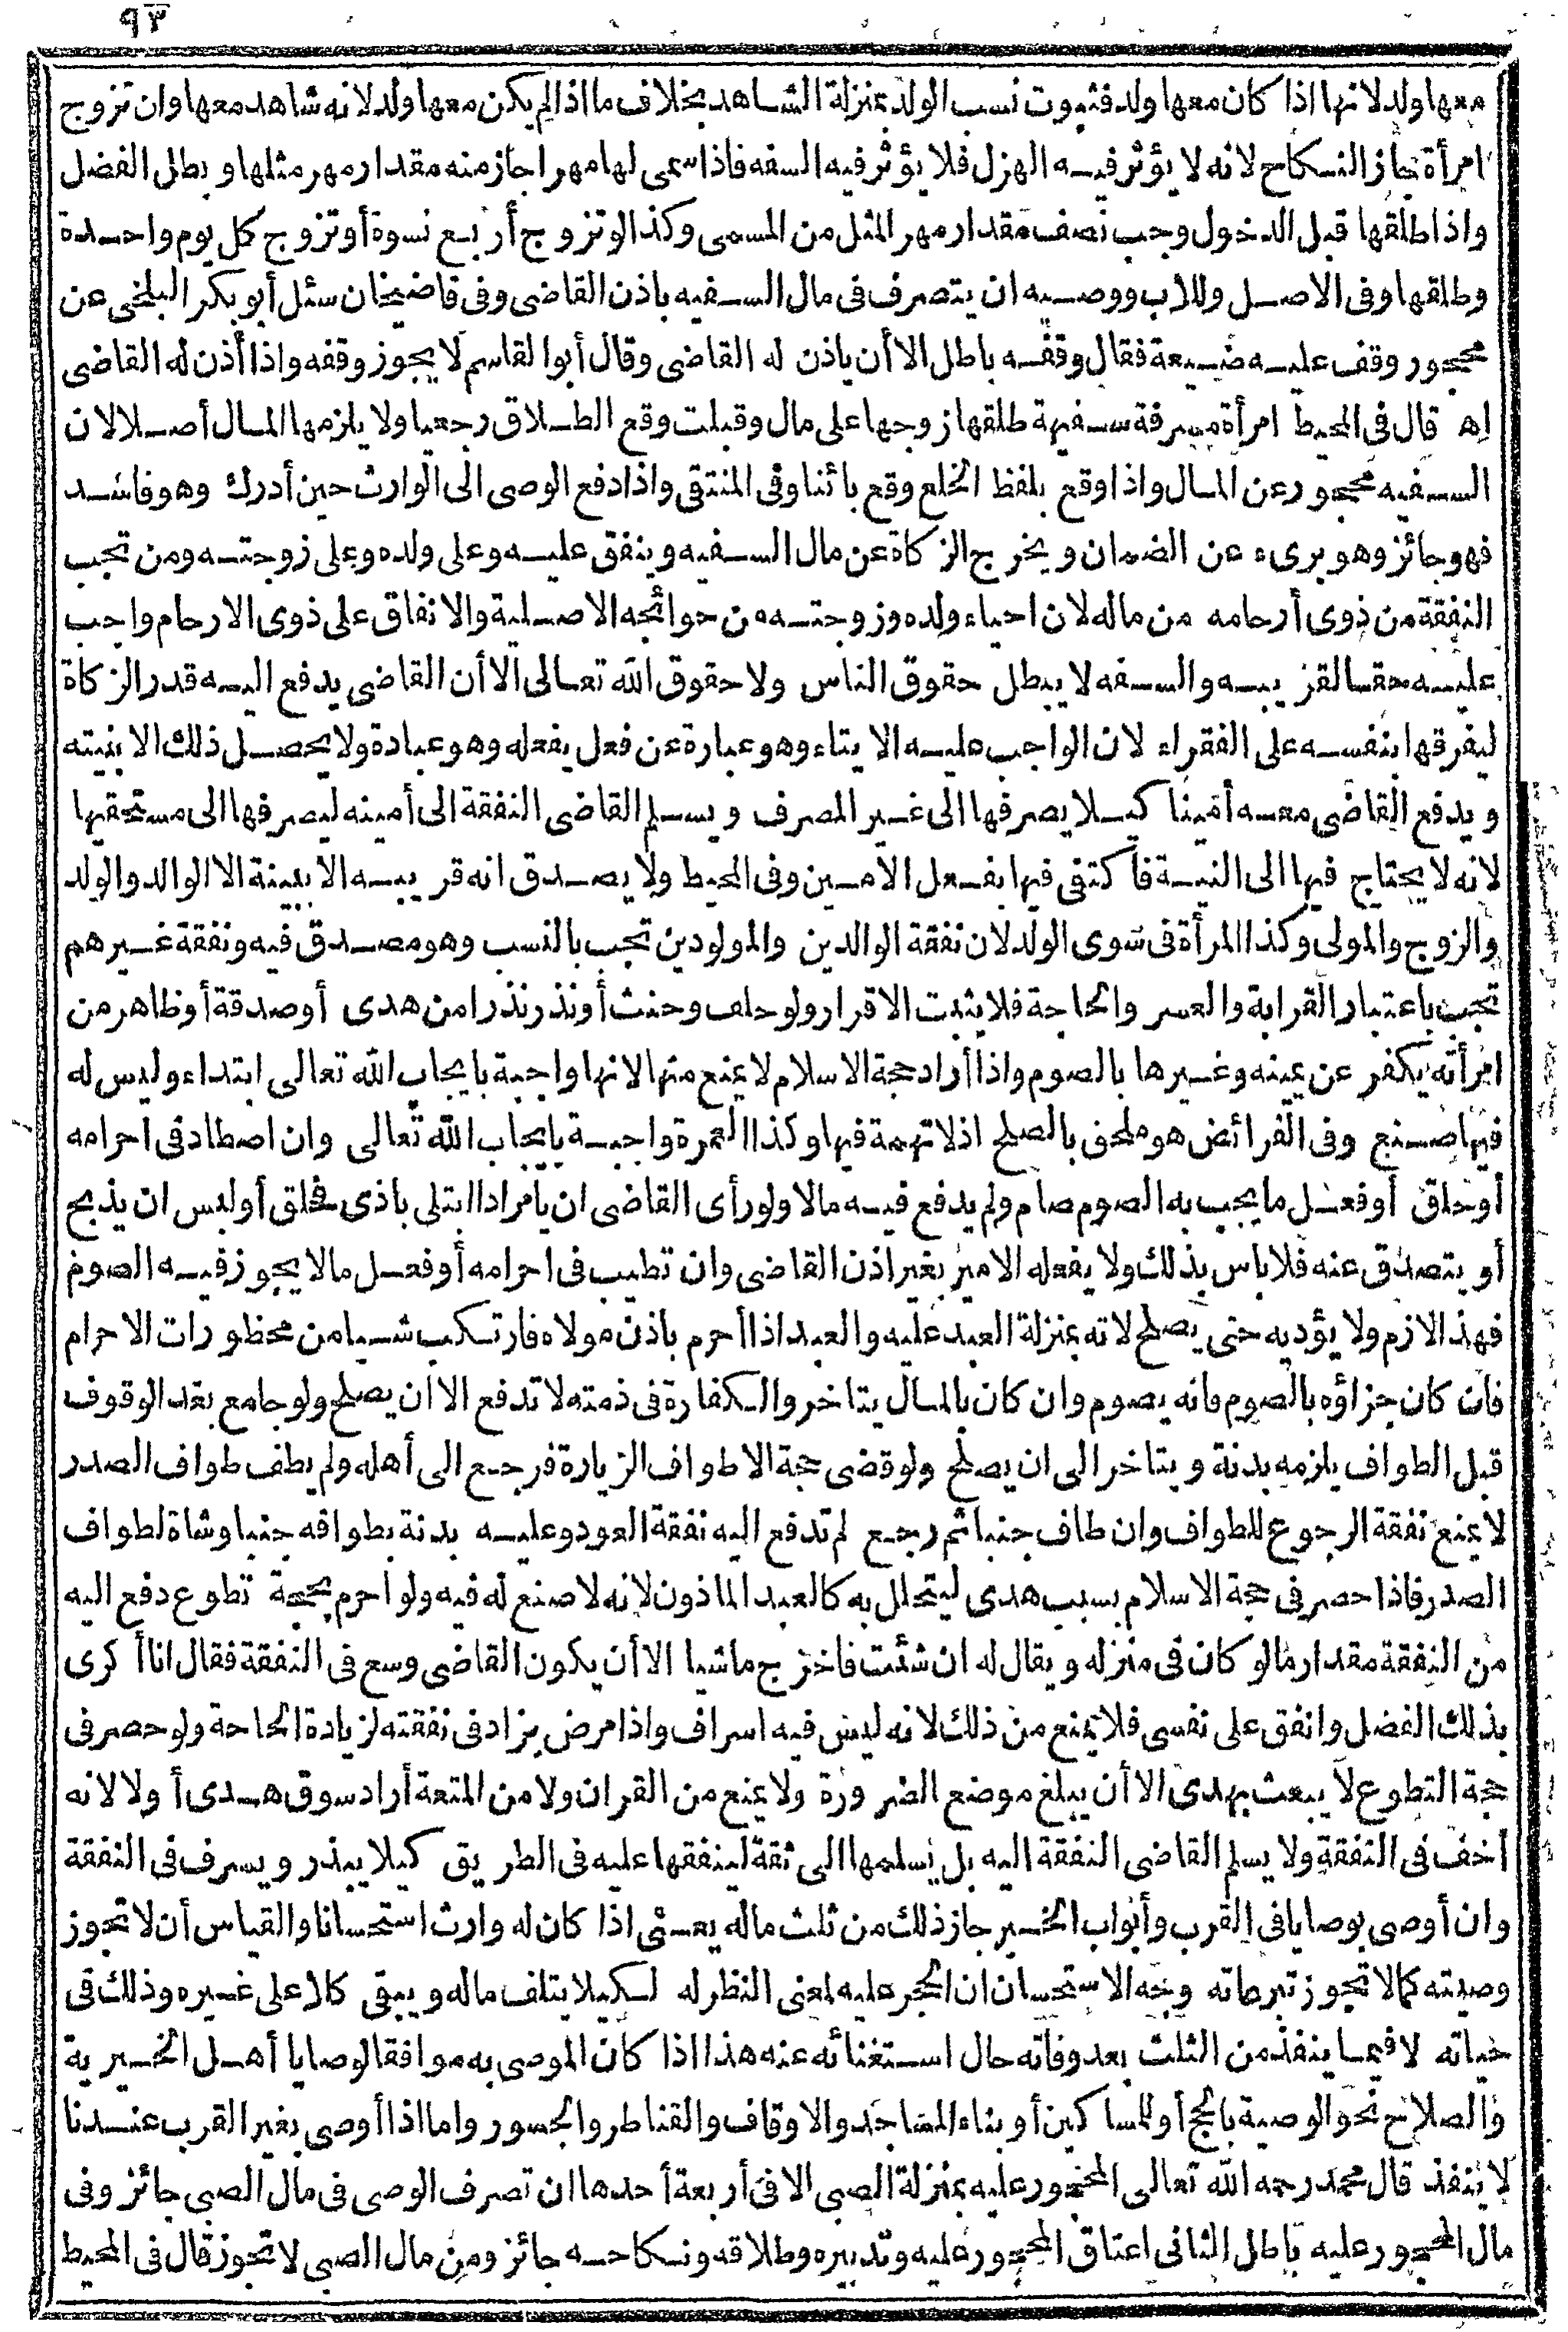 ٩٣
معها ولد لانها اذا كان معها ولد فثبوت نسب الولد بمنزلة الشاهد بخلاف ما اذا لم يكن معها ولد لانه شاهد معها وان تزوج
امرأة جاز النكاح لانه لا يؤثر فيه الهزل فلا يؤثر فيه السفه فاذا سمى لها مهرا جاز منه مقدار مهر مثلها وبطل الفضل
واذا طلقها قبل الدخول وجب نصف مقدار مهر المثل من المسمى وكذا لو تزوج أربع نسوة أو تزوج كل يوم واحدة
وطلقها وفى الاصل وللاب ووصيه ان يتصرف فى مال السفيه باذن القاضى وفى قاضيخان سئل أبو بكر البلخى عن
محجور وقف عليه ضيعة فقال وقفه باطل الا أن ياذن له القاضى وقال أبو القاسم لا يجوز وقفه واذا أذن له القاضى
اه قال فى المحيط امرأة مسرفة سفيهة طلقها زوجها على مال وقبلت وقع الطلاق رجعيا ولا يلزمها المال أصلا لان
السفيه محجور عن المال واذا وقع بلفظ الخلع وقع بائنا وفى المنتقى واذا دفع الوصى الى الوارث حين أدرك وهو فاسد
فهو جائز وهو برىء عن الضمان ويخرج الزكاة عن مال السفيه وينفق عليه وعلى ولده وعلى زوجته ومن تجب
النفقة من ذوى أرحامه من ماله لان احياء ولده وزوجته من حوائجه الاصلية والانفاق على ذوى الارحام واجب
عليه حقا لقريبه والسفه لا يبطل حقوق الناس ولا حقوق الله تعالى الا أن القاضى يدفع اليه قدر الزكاة
ليفرقها بنفسه على الفقراء لان الواجب عليه الايتاء وهو عبارة عن فعل يفعله وهو عبادة ولا يحصل ذلك الا بنيته
ويدفع القاضى معه أمينا كيلا يصرفها الى غير المصرف ويسلم القاضى النفقة الى أمينه ليصرفها الى مستحقيها
لانه لا يحتاج فيها الى النية فاكتفى فيها بفعل الامين وفى المحيط ولا يصدق انه قريبه الا ببينة الا الوالد والولد
والزوج والمولى وكذا المرأة فى سوى الولد لان نفقة الوالدين والمولودين تجب بالنسب وهو مصدق فيه ونفقة غيرهم
تجب باعتبار القرابة والعسر والحاجة فلا يثبت الاقرار ولو حلف وحنث أو نذر نذرا من هدى أو صدقة أو ظاهر من
امرأته يكفر عن يمينه وغيرها بالصوم واذا أراد حجة الاسلام لا يمنع منها لانها واجبة بايجاب الله تعالى ابتداء وليس له
فيها صنع وفى الفرائض هو ملحق بالصلح اذ لا تهمة فيها وكذا العمرة واجبة بايجاب الله تعالى وان اصطاد فى احرامه
أو حلق أو فعل ما يجب به الصوم صام ولم يدفع فيه مالا ولو رأى القاضى ان يامر اذا ابتلى باذى فحلق أو لبس ان يذبح
أو يتصدق عنه فلا باس بذلك ولا يفعله الامير بغير اذن القاضى وان تطيب فى احرامه أو فعل مالا يجوز فيه الصوم
فهذا لازم ولا يؤديه حتى يصلح لانه بمنزلة العبد عليه والعبد اذا أحرم باذن مولاه فارتكب شيا من محظورات الاحرام
فان كان جزاؤه بالصوم فانه يصوم وان كان بالمال يتاخر والكفارة فى ذمته لا تدفع الا ان يصلح ولو جامع بعد الوقوف
قبل الطواف يلزمه بدنة ويتاخر الى ان يصلح ولو قضى حجة الا طواف الزيارة فرجع الى أهله ولم يطف طواف الصدر
لا يمنع نفقة الرجوع للطواف وان طاف جنبا ثم رجع لم تدفع اليه نفقة العود وعليه بدنة بطوافه جنبا وشاة لطواف
الصدر فاذا حصر فى حجة الاسلام بسبب هدى ليتحلل به كالعبد الماذون لانه لا صنع له فيه ولو أحرم بحجة تطوع دفع اليه
من النفقة مقدار مالو كان فى منزله ويقال له ان شئت فاخرج ماشيا الا أن يكون القاضى وسع فى النفقة فقال انا أكرى
بذلك الفضل وانفق على نفسى فلا يمنع من ذلك لانه ليس فيه اسراف واذا مرض يزاد فى نفقته لزيادة الحاجة ولو حصر فى
حجة التطوع لا يبعث بهدى الا أن يبلغ موضع الضرورة ولا يمنع من القران ولا من المتعة أراد سوق هدى أولا لانه
أخف فى النفقة ولا يسلم القاضى النفقة اليه بل يسلمها الى ثقة لينفقها عليه فى الطريق كيلا يبذر ويسرف فى النفقة
وان أوصى بوصايا فى القرب وأبواب الخير جاز ذلك من ثلث ماله يعنى اذا كان له وارث استحسانا والقياس أن لا تجوز
وصيته كما لا تجوز تبرعاته وجه الاستحسان ان الحجر عليه لمعنى النظر له لكيلا يتلف ماله ويبقى كلا على غيره وذلك فى
حياته لا فيما ينفذ من الثلث بعد وفاته حال استغنائه عنه هذا اذا كان الموصى به موافقا لوصايا أهل الخيرية
والصلاح نحو الوصية بالحج أو للمساكين أو بناء المساجد والاوقاف والقناطر والجسور واما اذا أوصى بغير القرب عندنا
لا ينفذ قال محمد رحمه الله تعالى المحجور عليه بمنزلة الصبى الا فى أربعة أحدها ان تصرف الوصى فى مال الصبى جائز وفى
مال المحجور عليه باطل الثانى اعتاق المحجور عليه وتدبيره وطلاقه ونكاحه جائز ومن مال الصبى لا تجوز قال فى المحيط